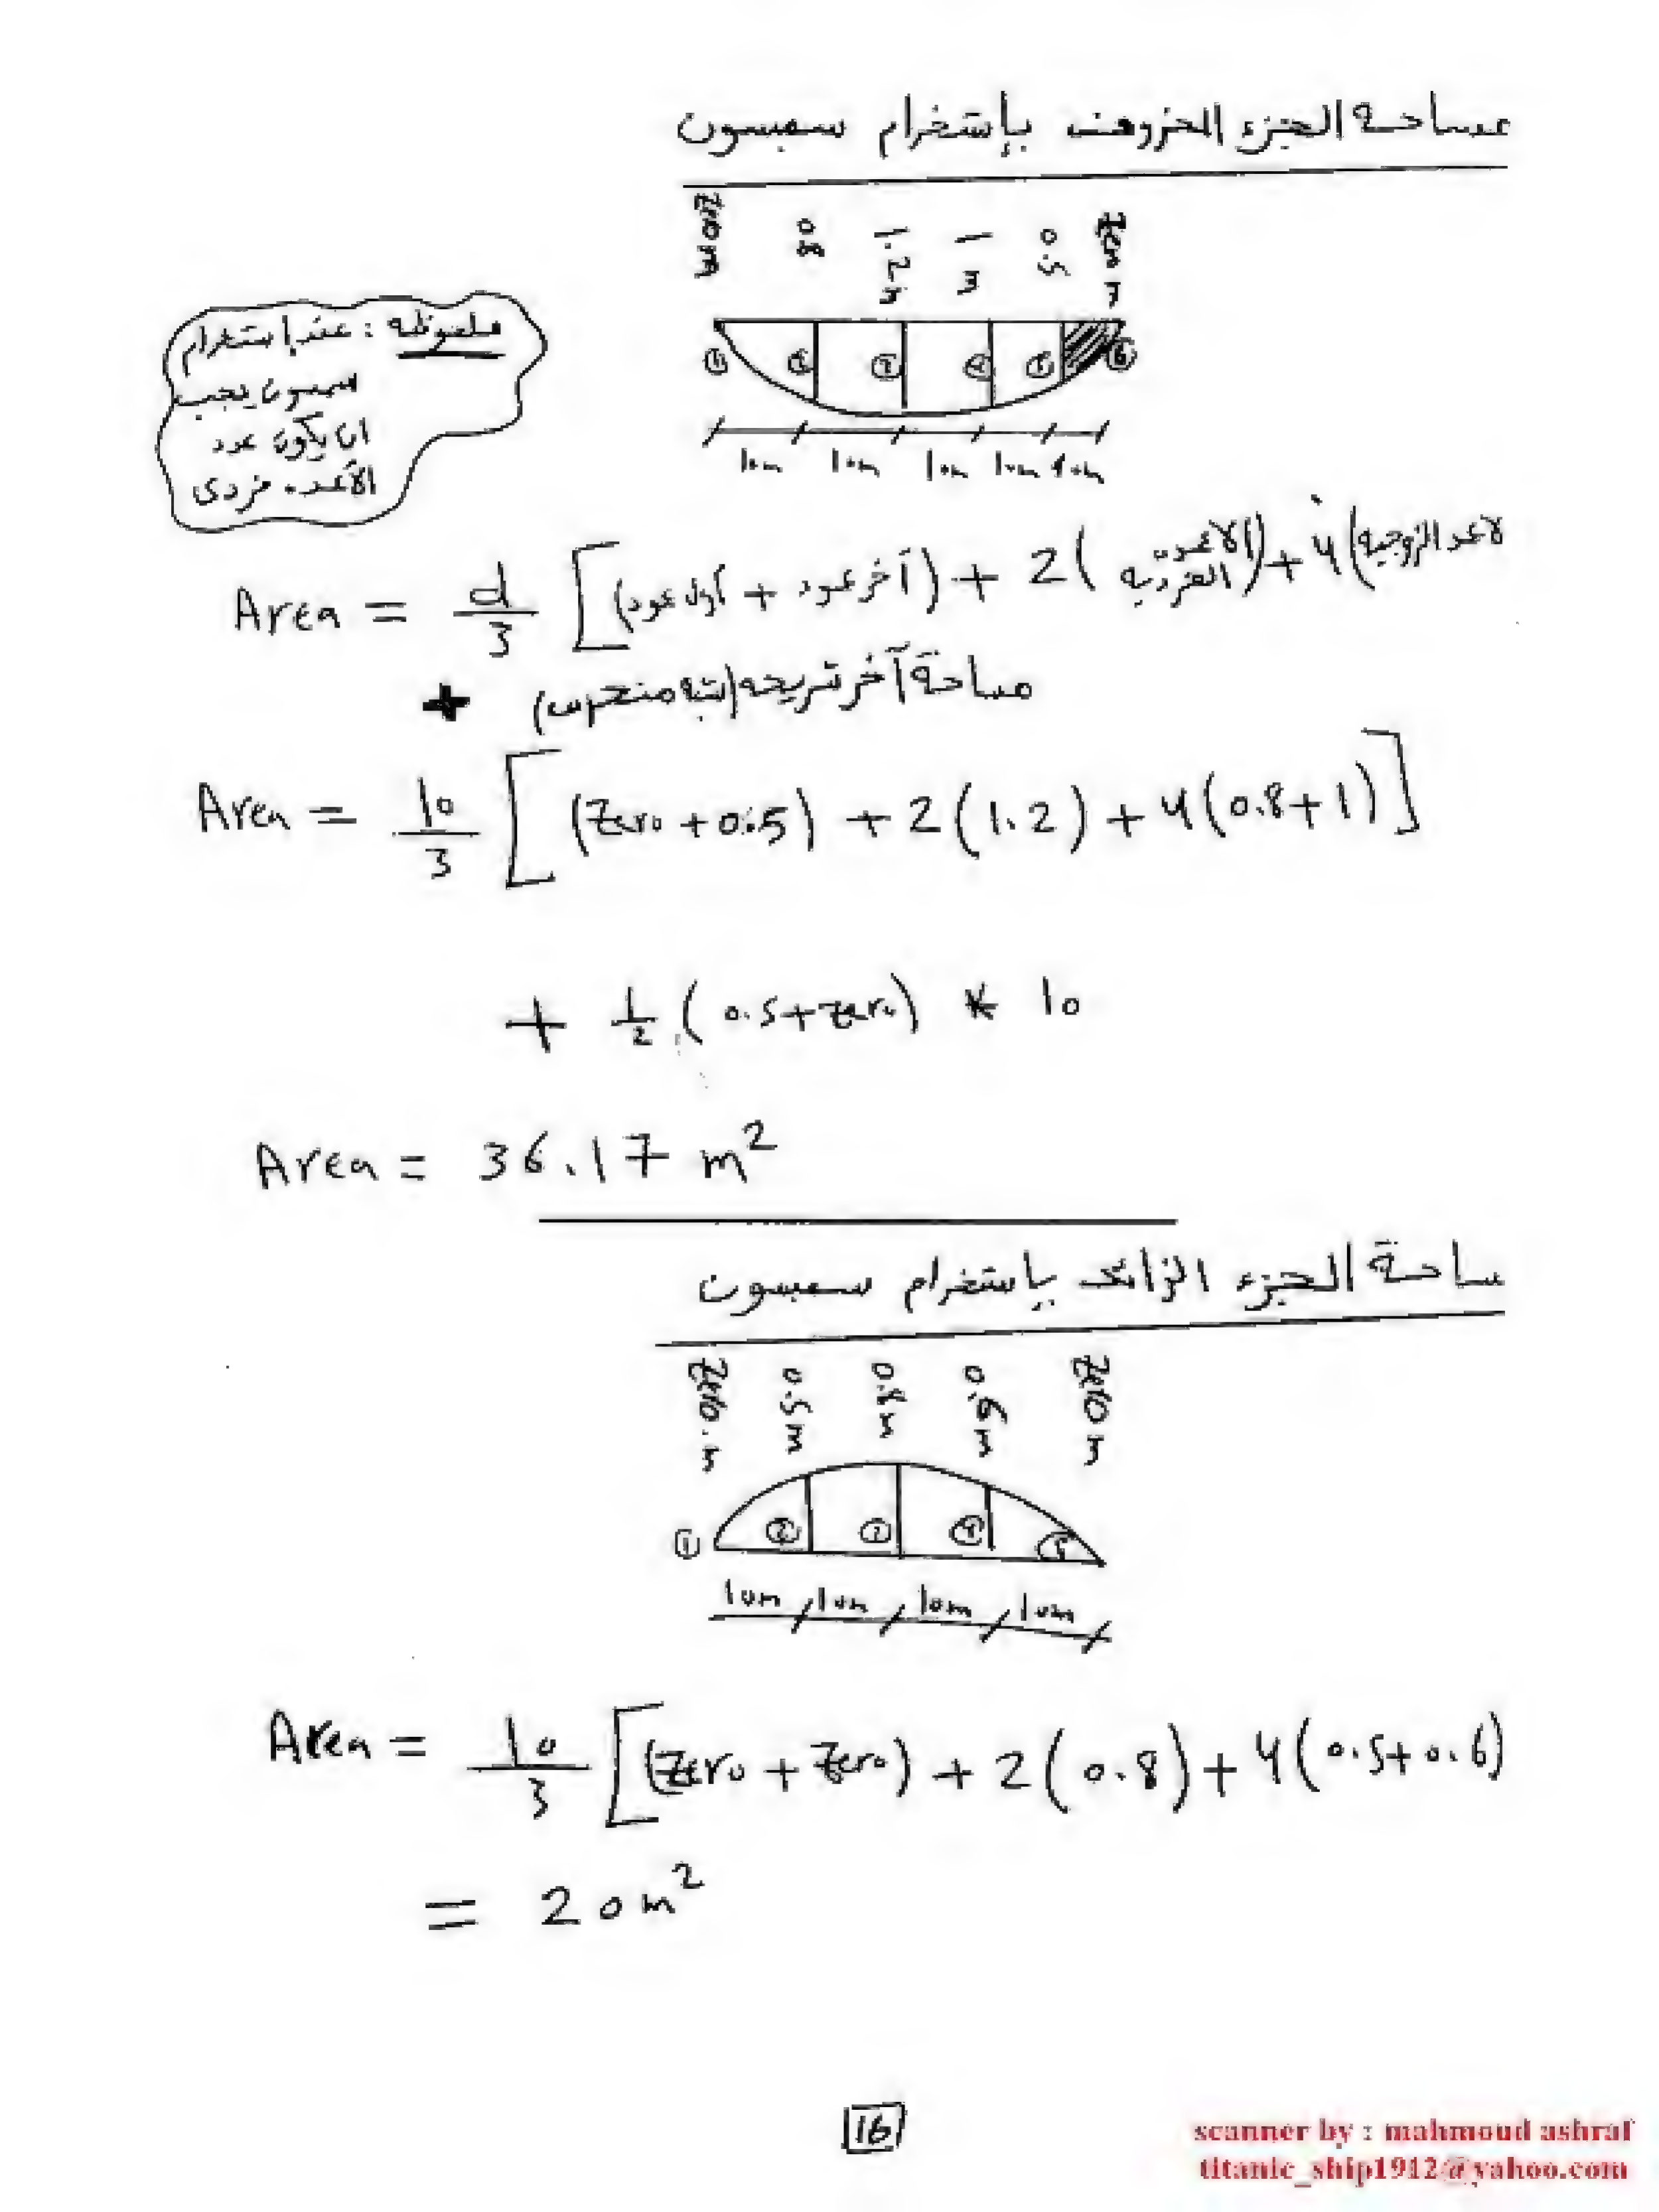 مساحة الجزء المحذوف بإستخدام سمبسون
Zero m 0.8 1.2 m 1 m 0.5 Zero m
① ② ③ ④ ⑤ ⑥
10m 10m 10m 10m 10m
ملحوظه : عند استخدام
سمبسون يجب
ان يكون عدد
الأعمده فردى
Area = d/3 [(اول عمود + آخر عمود) + 2 (الأعمده الفرديه) + 4 (لاعمد الزوجيه
+ مساحة آخر شريحه (شبه منحرف)
Area = 10/3 [(Zero + 0.5) + 2 (1.2) + 4 (0.8 + 1)]
+ 1/2 (0.5 + zero) * 10
Area = 36.17 m²
مساحة الجزء الزائد باستخدام سمبسون
Zero.m 0.5m 0.8m 0.6m Zero m
① ② ③ ④ ⑤
10m 10m 10m 10m
Area = 10/3 [(Zero + Zero) + 2 (0.8) + 4 (0.5 + 0.6)
= 20 m²
16
scanner by : mahmoud ashraf
titanic_ship1912@yahoo.com